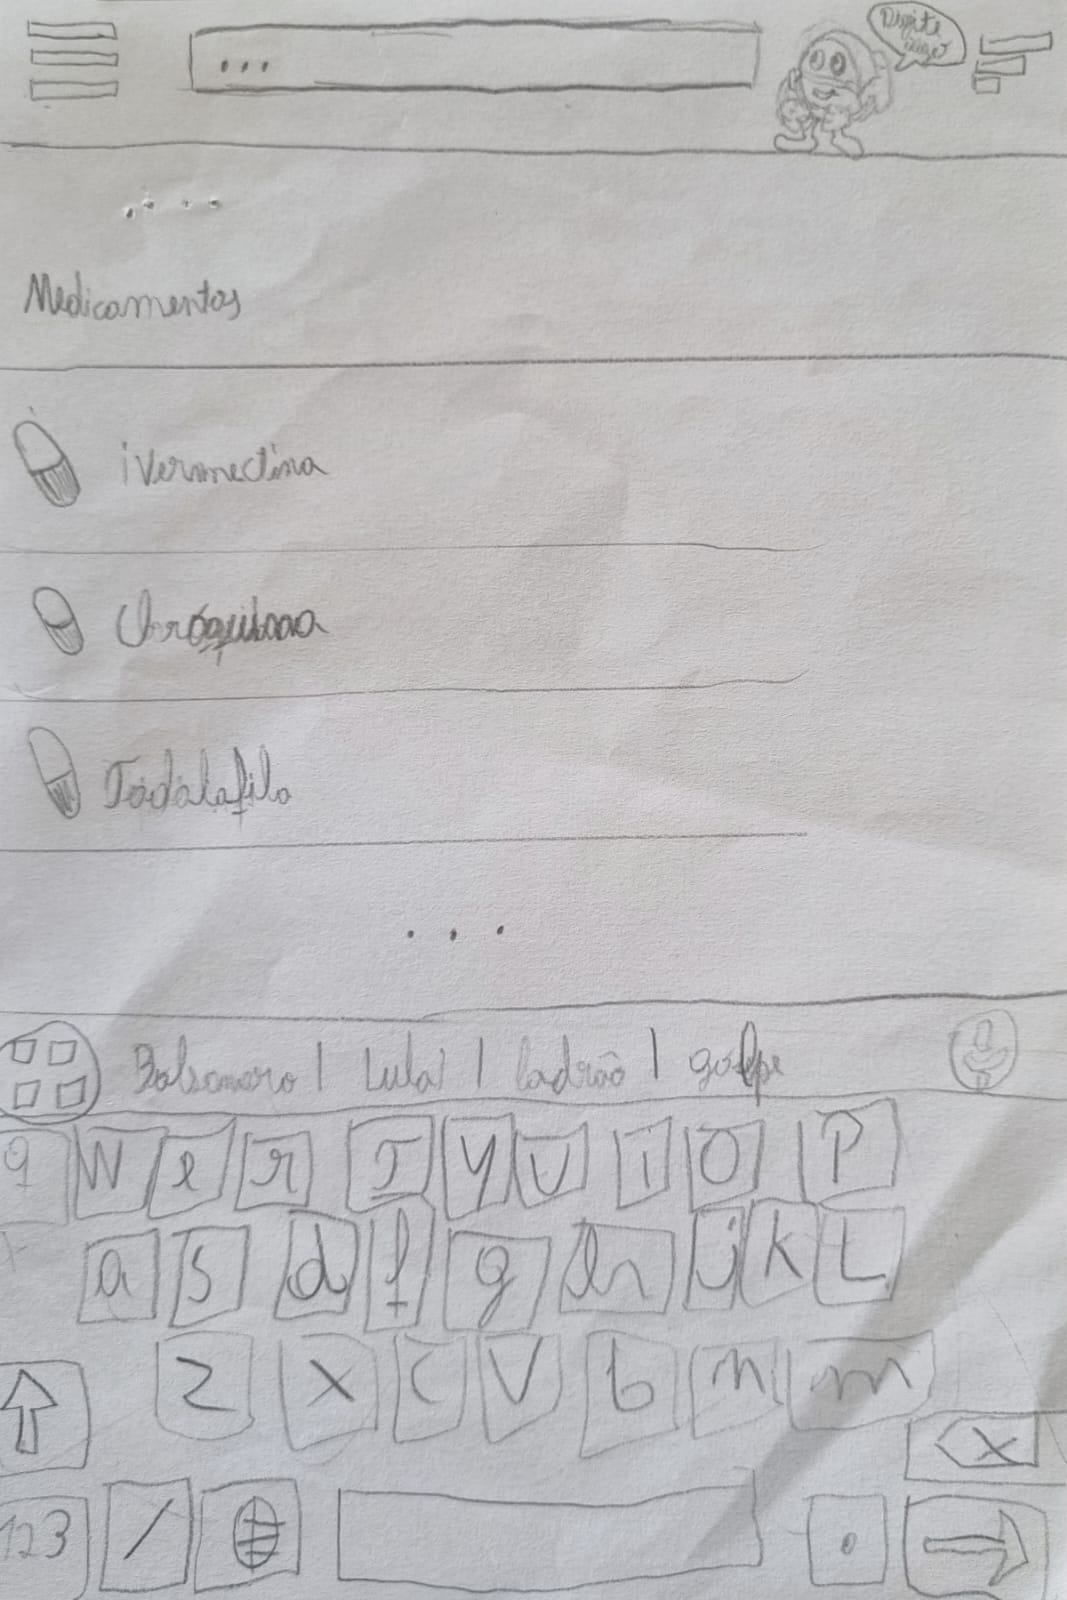 Digite
algo
...
....
Medicamentos
iVermectina
Cloroquina
Tadalafila
...
Bolsonaro | Lula | ladrão | golpe
q W e r T y U i O P
a s d f g h j k L
z x c v b n m
X
123 / .